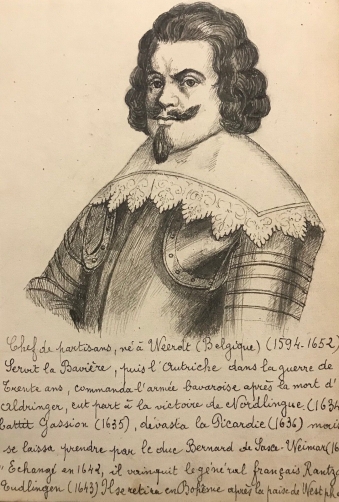 Chef de partisans, né à Weerdt (Belgique) (1594-1652)
Servit la Bavière, puis l'Autriche dans la guerre de
Trente ans, commanda l'armée bavaroise après la mort d'
Aldringer, eut part à la victoire de Nordlingue (1634
battit Gassion (1635), dévasta la Picardie (1636) mais
se laissa prendre par le duc Bernard de Saxe-Weimar (16
Echangé en 1642, il vainquit le général français Rantza
Tudlingen (1643) Il se retira en Bohème après la paix de Westph